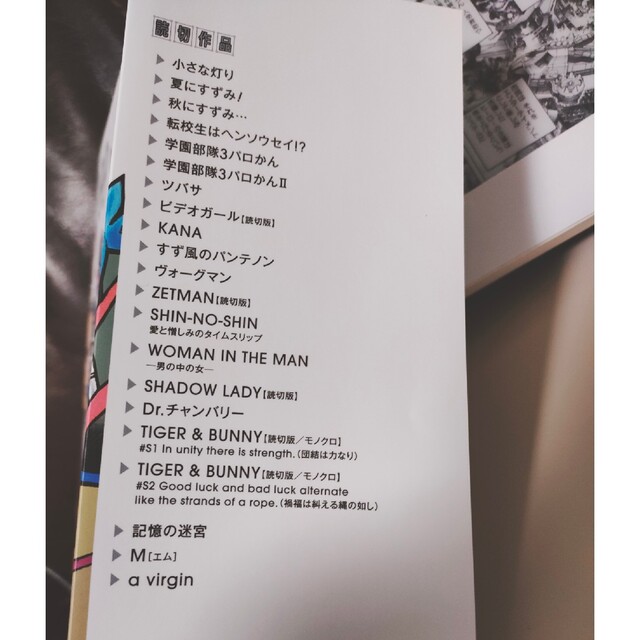 読切作品
▶小さな灯り
▶夏にすずみ!
▶秋にすずみ…
▶転校生はヘンソウセイ!?
▶学園部隊3パロかん
▶学園部隊3パロかんⅡ
▶ツバサ
▶ビデオガール【読切版】
▶KANA
▶すず風のパンテノン
▶ヴォーグマン
▶ZETMAN【読切版】
▶SHIN-NO-SHIN
愛と憎しみのタイムスリップ
▶WOMAN IN THE MAN
—男の中の女—
▶SHADOW LADY【読切版】
▶Dr.チャンバリー
▶TIGER & BUNNY【読切版/モノクロ】
#S1 In unity there is strength.(団結は力なり)
▶TIGER & BUNNY【読切版/モノクロ】
#S2 Good luck and bad luck alternate
like the strands of a rope.(禍福は糾える縄の如し)
▶記憶の迷宮
▶M[エム]
▶a virgin